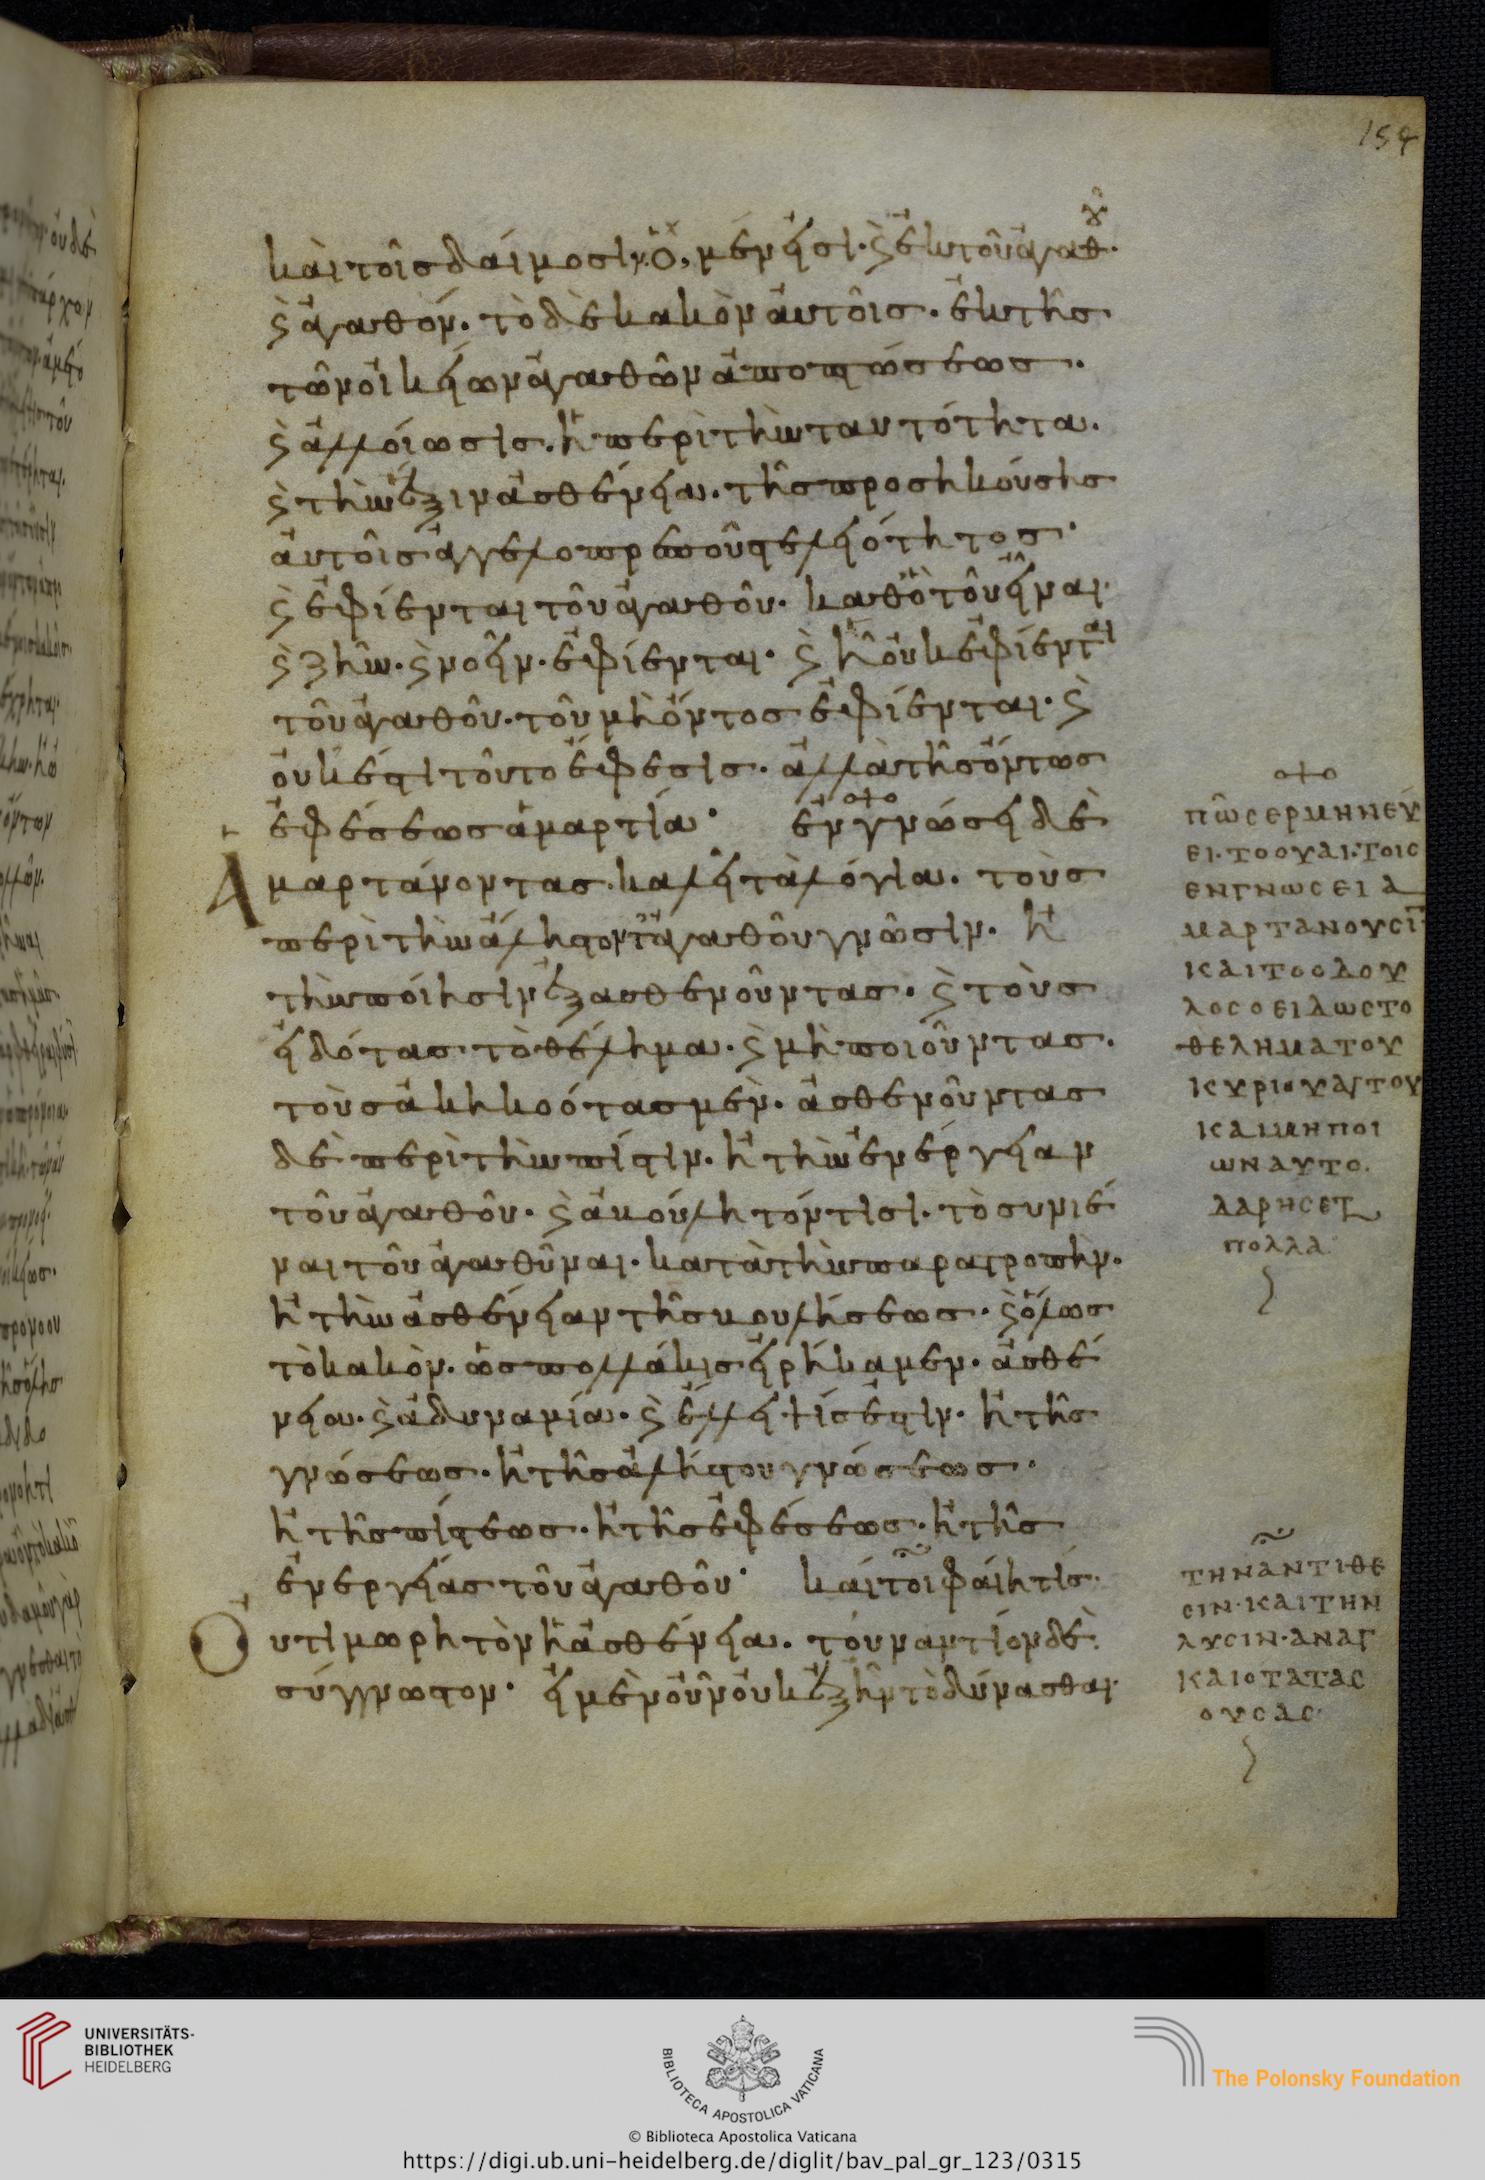 154
καὶ τοῖς δαίμοσιν. ὃ, μέν εἰσι· καὶ ἐκ τοῦ ἀγαθοῦ·
καὶ ἀγαθόν· τὸ δὲ κακὸν αὐτοῖς· ἐκ τῆς
τῶν οἰκείων ἀγαθῶν ἀποπτώσεως·
καὶ ἀλλοίωσις· ἡ περὶ τὴν ταυτότητα·
καὶ τὴν ἕξιν ἀσθένεια· τῆς προσηκούσης
αὐτοῖς ἀγγελοπρεποῦς τελειότητος·
καὶ ἐφίενται τοῦ ἀγαθοῦ· καθὸ τοῦ εἶναι·
καὶ ζῆν· καὶ νοεῖν· ἐφίενται· καὶ ᾗ οὐκ ἐφίενται
τοῦ ἀγαθοῦ· τοῦ μὴ ὄντος ἐφίενται· καὶ
οὐκ ἔστι τοῦτο ἔφεσις· ἀλλὰ τῆς ὄντως
ἐφέσεως ἁμαρτία· ἐν γνώσει δὲ
Ἁμαρτάνοντας καλεῖ τὰ λόγια· τοὺς
περὶ τὴν ἄληστον τἀγαθοῦ γνῶσιν· ἢ
τὴν ποίησιν ἐξασθενοῦντας· καὶ τοὺς
εἰδότας τὸ θέλημα· καὶ μὴ ποιοῦντας·
τοὺς ἀκηκοότας μέν· ἀσθενοῦντας
δὲ περὶ τὴν πίστιν· ἢ τὴν ἐνέργειαν
τοῦ ἀγαθοῦ· καὶ ἀβούλητόν τισι· τὸ συνιέ
ναι τοῦ ἀγαθῦναι· κατὰ τὴν παρατροπήν·
ἢ τὴν ἀσθένειαν τῆς βουλήσεως· καὶ ὅλως
τὸ κακόν· ὡς πολλάκις εἰρήκαμεν· ἀσθέ
νεια· καὶ ἀδυναμία· καὶ ἔλλειψίς ἐστιν· ἢ τῆς
γνώσεως· ἢ τῆς ἀλήστου γνώσεως·
ἢ τῆς πίστεως· ἢ τῆς ἐφέσεως· ἢ τῆς
ἐνεργείας τοῦ ἀγαθοῦ· καίτοι φαίη τίς·
Οὐ τιμωρητὸν ἡ ἀσθένεια· τοὐναντίον δὲ
σύγγνωστον· εἰ μὲν οὖν οὐκ ἐξῆν τὸ δύνασθαι·
ΠΩΣ ΕΡΜΗΝΕΥ
ΕΙ· ΤΟ ΟΥΑΙ· ΤΟΙΣ
ΕΝ ΓΝΩΣΕΙ Α
ΜΑΡΤΑΝΟΥΣΙ
ΚΑΙ ΤΟ Ο ΔΟΥ
ΛΟΣ Ο ΕΙΔΩΣ ΤΟ
ΘΕΛΗΜΑ ΤΟΥ
ΚΥΡΙΟΥ ΑΥΤΟΥ
ΚΑΙ ΜΗ ΠΟΙ
ΩΝ ΑΥΤΟ·
ΔΑΡΗΣΕΤ
ΠΟΛΛΑ
ΤΗΝ ΑΝΤΙΘΕ
ΣΙΝ· ΚΑΙ ΤΗΝ
ΛΥΣΙΝ· ΑΝΑΓ
ΚΑΙΟΤΑΤΑΣ
ΟΥΣΑΣ
UNIVERSITÄTS-
BIBLIOTHEK
HEIDELBERG
BIBLIOTECA APOSTOLICA VATICANA
The Polonsky Foundation
© Biblioteca Apostolica Vaticana
https://digi.ub.uni-heidelberg.de/diglit/bav_pal_gr_123/0315